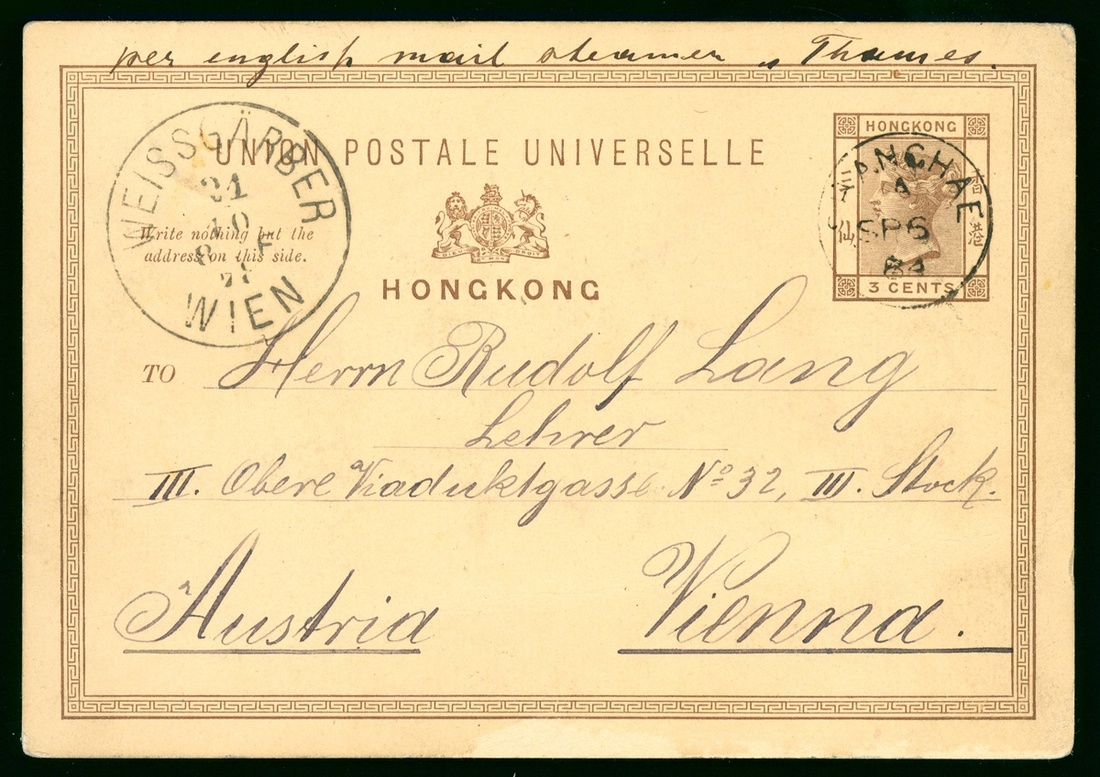 per english mail steamer „ Thames.
UNION POSTALE UNIVERSELLE
WEISSGÄRBER
WIEN
Write nothing but the
address on this side.
HONGKONG
HONGKONG
三仙
香港
3 CENTS
SHANGHAE
A
SP 6
84
TO Herrn Rudolf Lang
Lehrer
III. Obere Viaduktgasse No 32, III. Stock.
Austria Vienna.